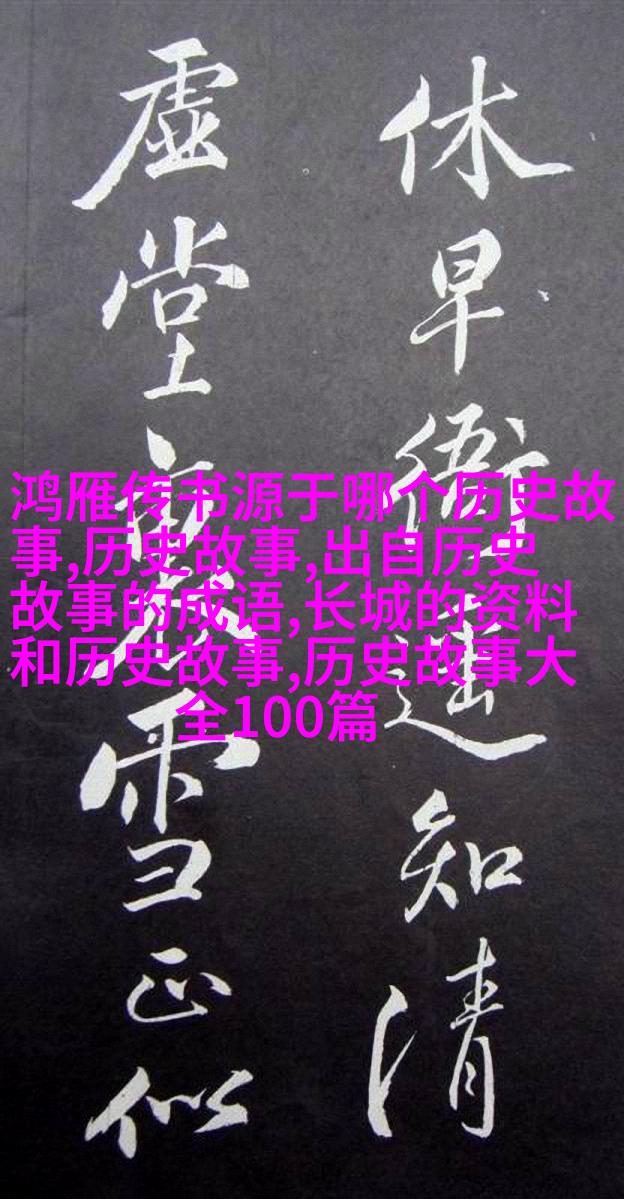 鸿雁传书源于哪个历史故
事,历史故事,出自历史
故事的成语,长城的资料
和历史故事,历史故事大
全100篇
休早衙知清
虛堂雪正似